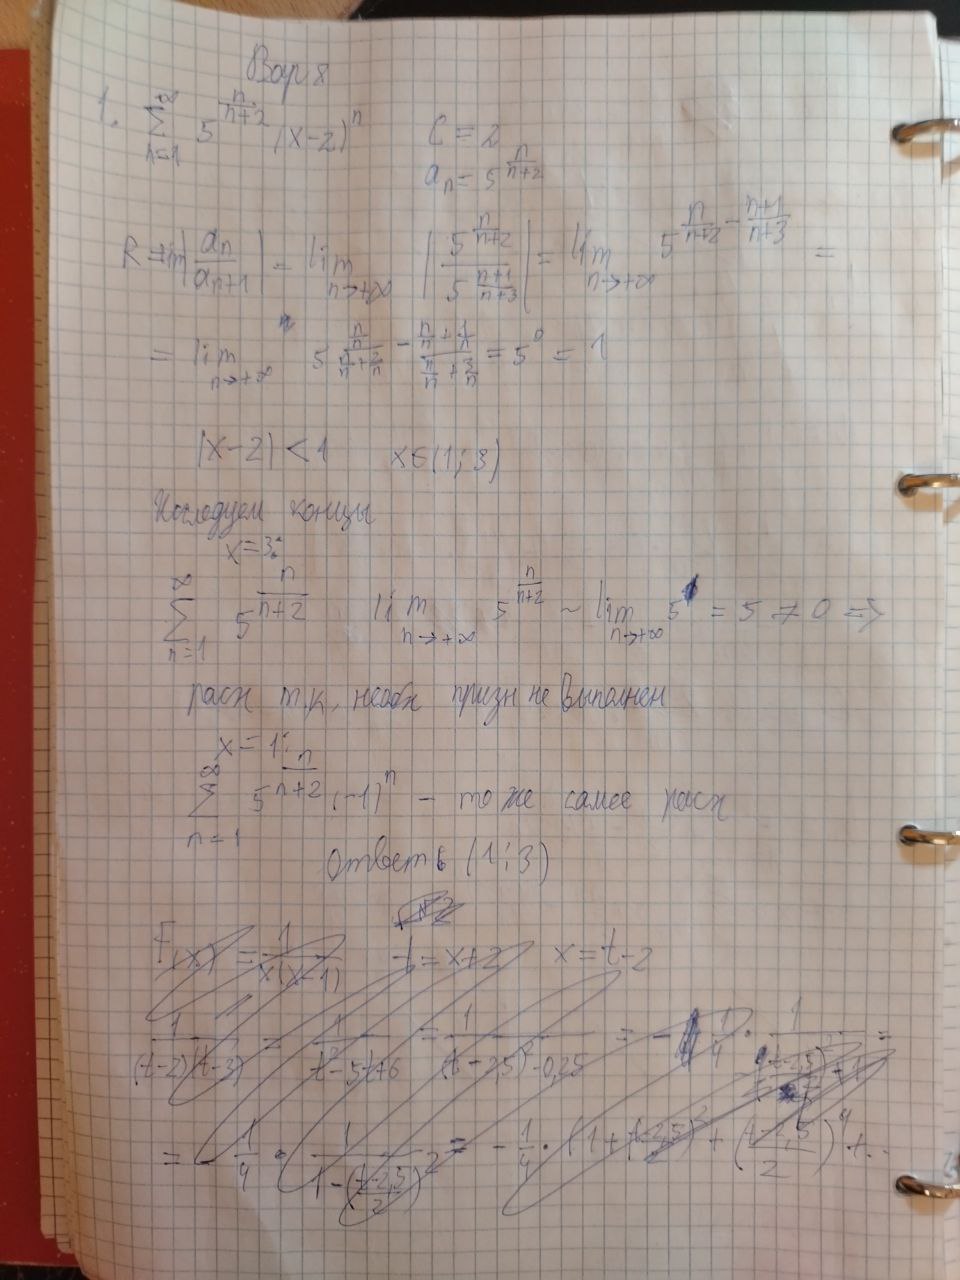 Вар 8
1. \sum_{n=1}^{\infty} 5^{\frac{n}{n+2}} (x-2)^n    C = 2
a_n = 5^{\frac{n}{n+2}}
R = lim |\frac{a_n}{a_{n+1}}| = lim_{n→+∞} |\frac{5^{\frac{n}{n+2}}}{5^{\frac{n+1}{n+3}}}| = lim_{n→+∞} 5^{\frac{n}{n+2} - \frac{n+1}{n+3}} =
= lim_{n→+∞} 5^{\frac{\frac{n}{n}}{\frac{n}{n}+\frac{2}{n}} - \frac{\frac{n}{n}+\frac{1}{n}}{\frac{n}{n}+\frac{3}{n}}} = 5^0 = 1
|x-2| < 1    x∈(1; 3)
Исследуем концы
x = 3:
\sum_{n=1}^{\infty} 5^{\frac{n}{n+2}}    lim_{n→+∞} 5^{\frac{n}{n+2}} ~ lim_{n→+∞} 5^1 = 5 ≠ 0 =>
расх т.к. необх призн не выполнен
x = 1:
\sum_{n=1}^{\infty} 5^{\frac{n}{n+2}} (-1)^n – то же самое расх
Ответ: (1; 3)
F(x) = \frac{1}{x(x-1)}    t = x+2    x = t-2
\frac{1}{(t-2)(t-3)} = \frac{1}{t^2-5t+6} = \frac{1}{(t-2,5)^2-0,25} = - \frac{1}{4} ·
= - \frac{1}{4} · \frac{1}{1-(\frac{t-2,5}{2})^2} = - \frac{1}{4} · (1+(\frac{t-2,5}{2})^2+(\frac{t-2,5}{2})^4+..